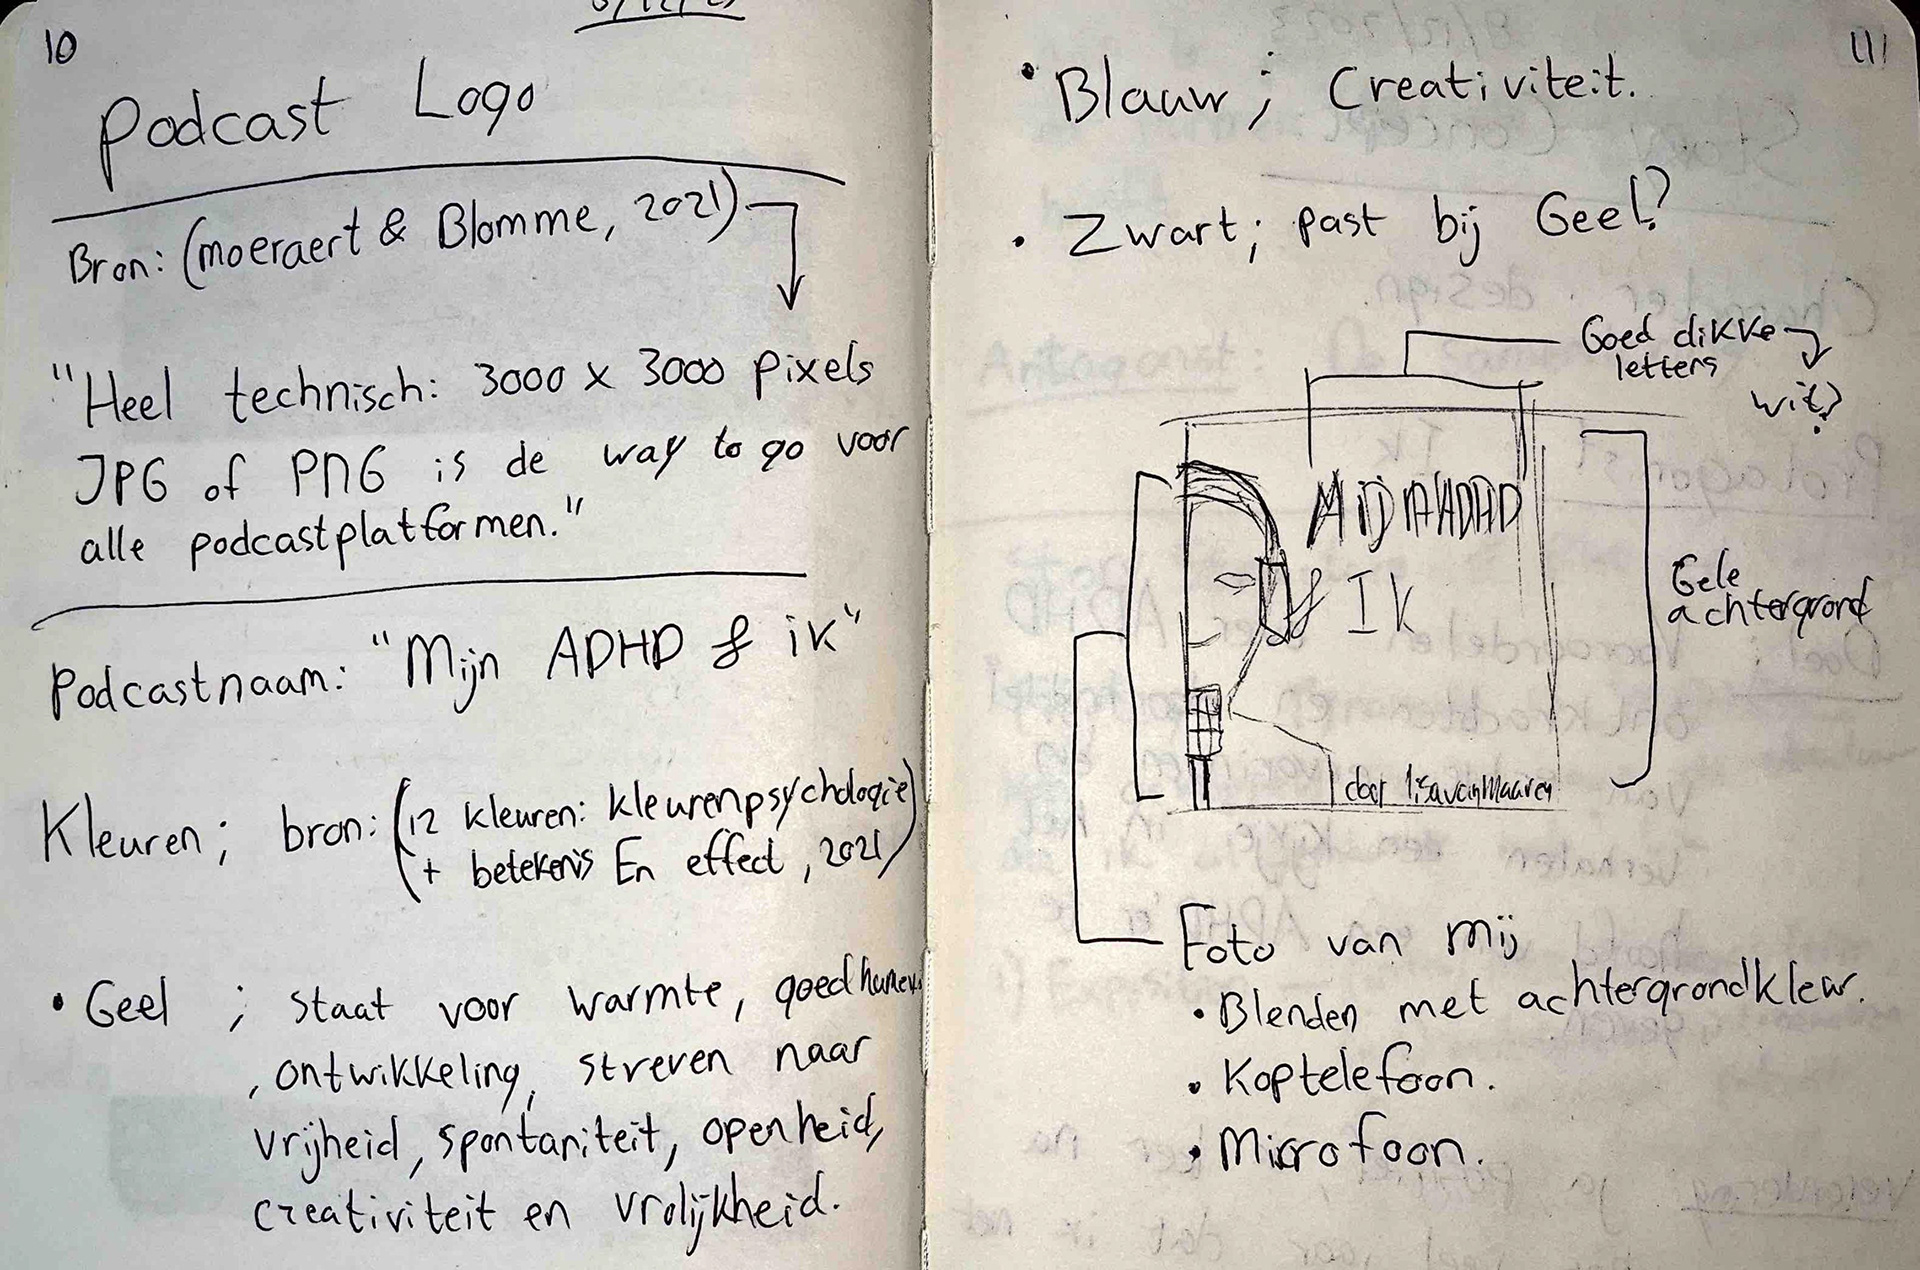 10
Podcast Logo
Bron: (moeraert & Blomme, 2021)
"Heel technisch: 3000 x 3000 pixels
JPG of PNG is de way to go voor
alle podcastplatformen."
Podcastnaam: "Mijn ADHD & ik"
Kleuren; bron: (12 kleuren: kleurenpsychologie
+ betekenis En effect, 2021)
• Geel ; staat voor warmte,
, ontwikkeling, streven naar
vrijheid, spontaniteit, openheid,
creativiteit en vrolijkheid.
11
• Blauw; Creativiteit.
• Zwart; past bij Geel?
Goed dikke
letters
wit?
MIJN ADHD
& IK
Gele
achtergrond
door lisa van Maaren
Foto van mij
• Blenden met achtergrondkleur.
• Koptelefoon.
• Microfoon.